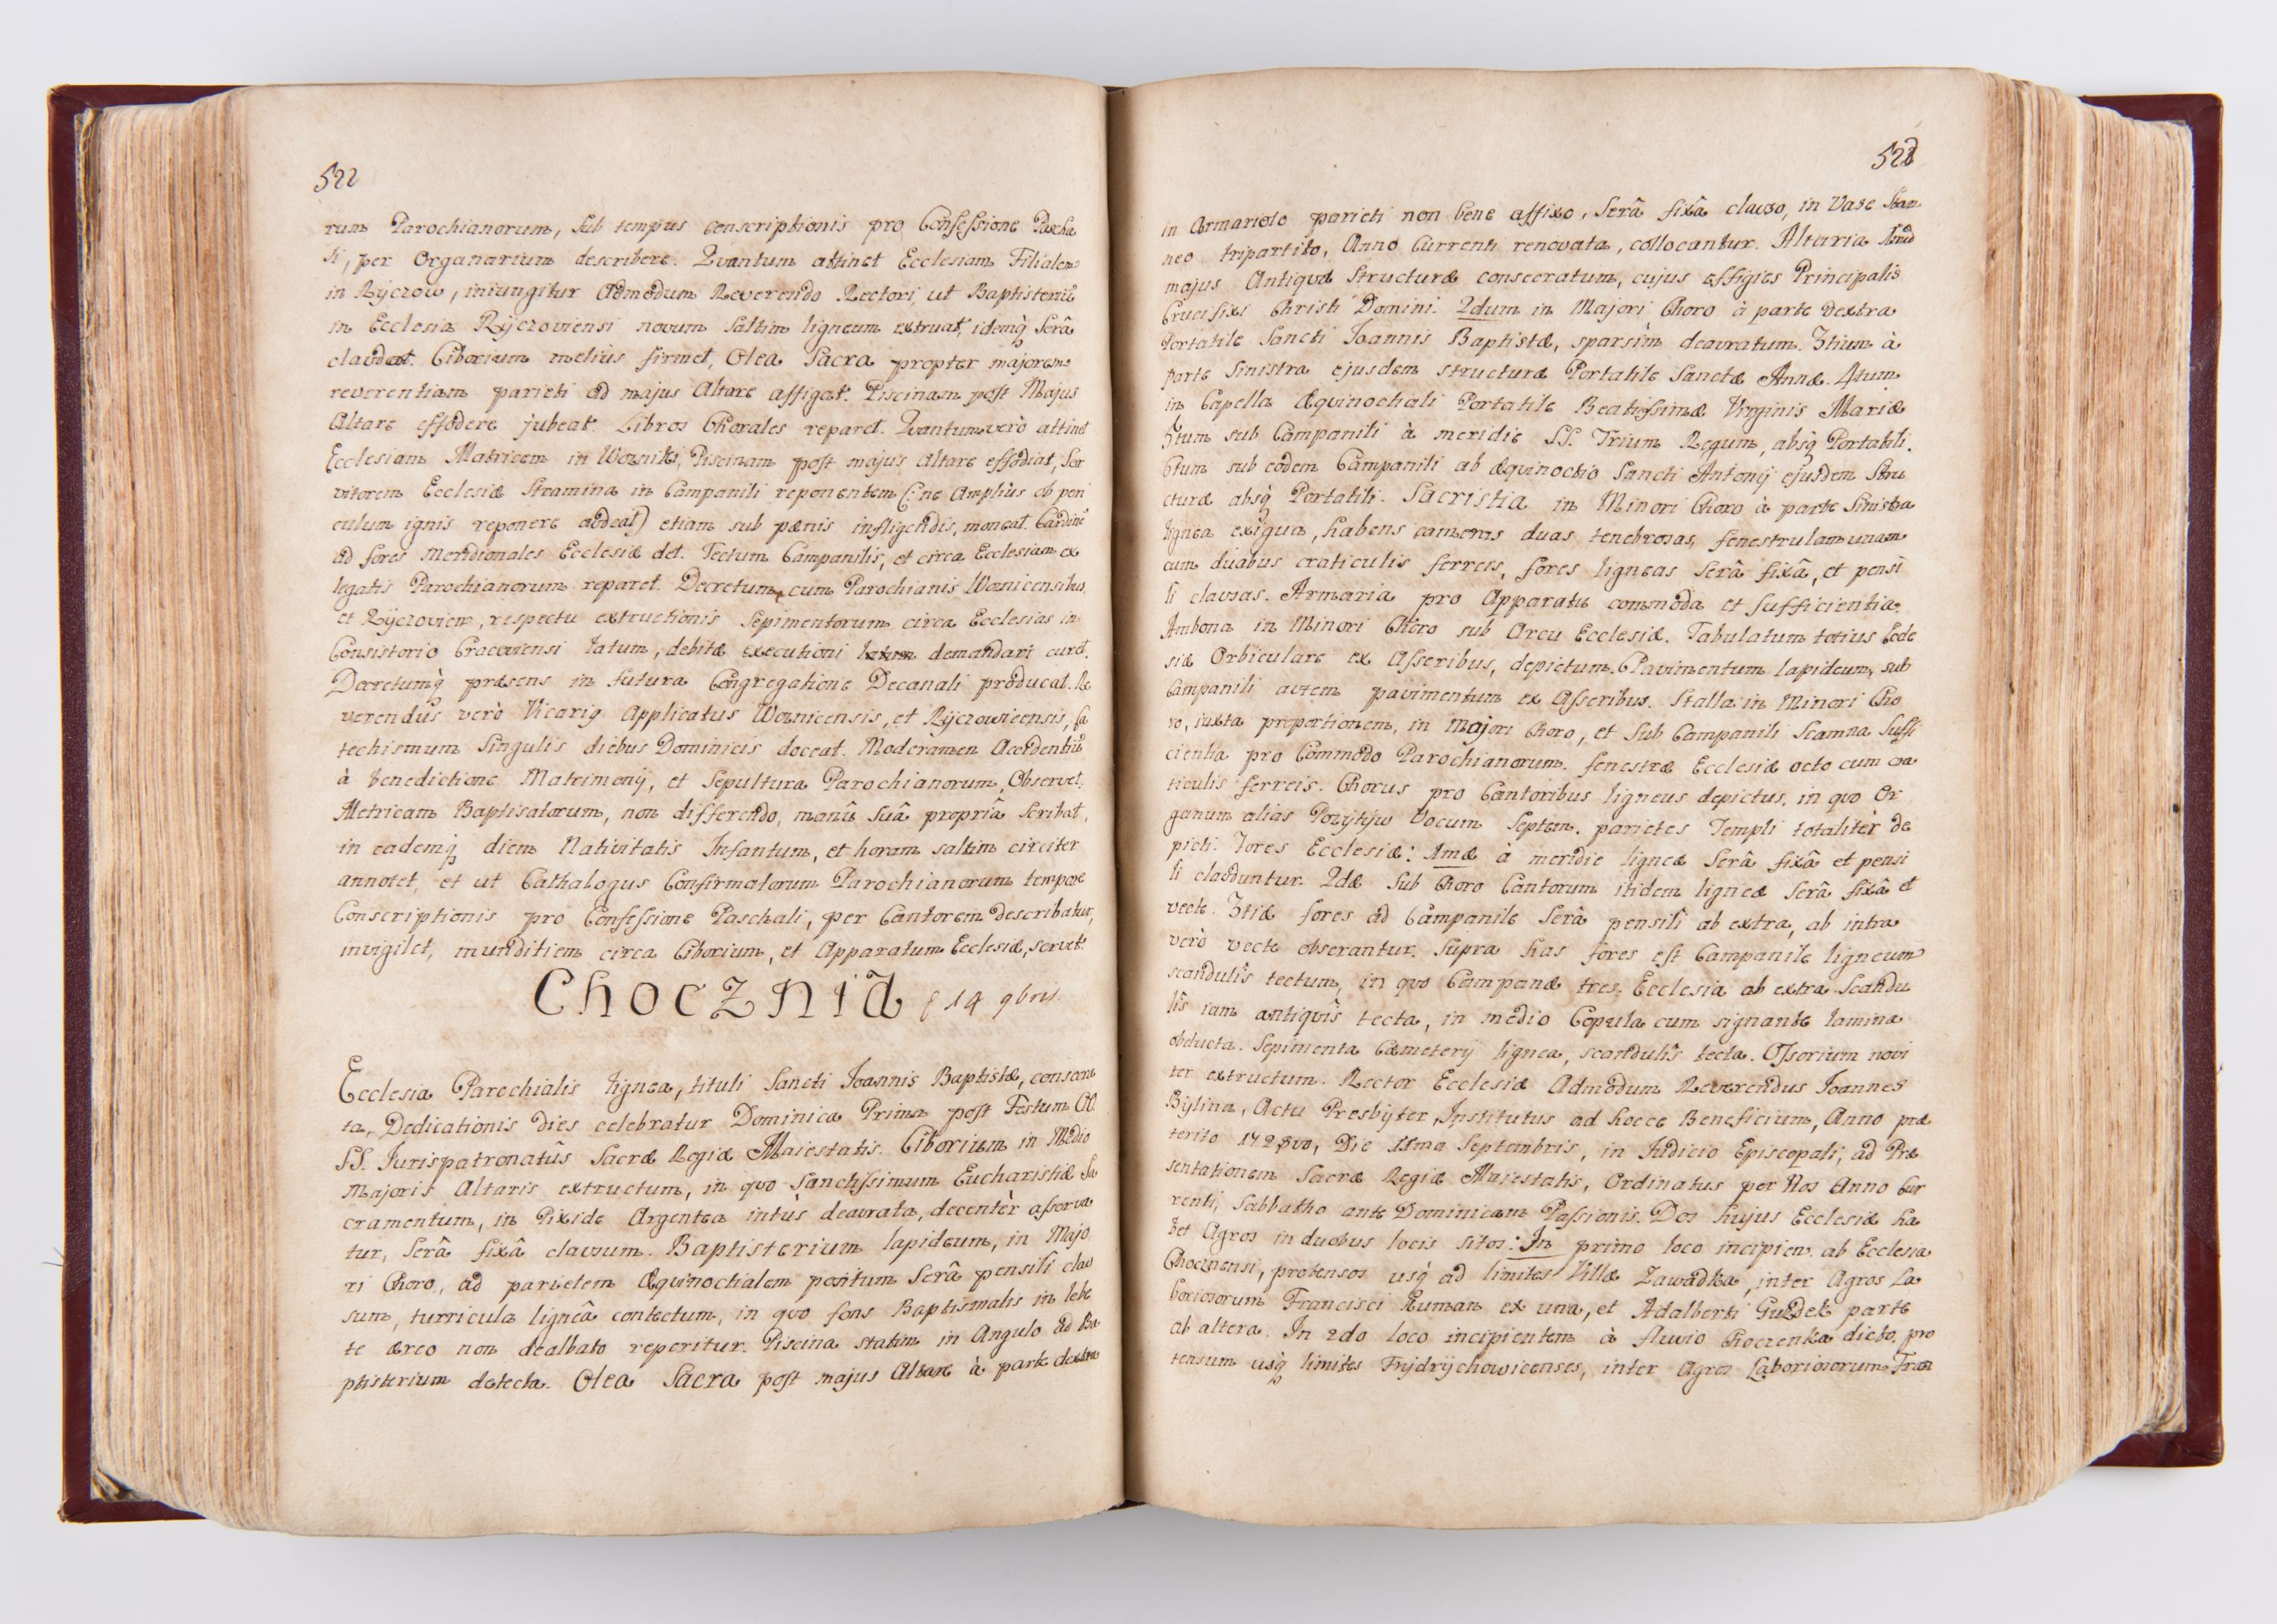 522
rum Parochianorum, sub tempus conscriptionis pro Confessione Pascha
li, per Organarium describere. Quantum attinet Ecclesiam Filialem
in Ryczow, iniungitur Admodum Reverendo Rectori, ut Baptisteriũ
in Ecclesia Ryczoviensi novum saltim ligneum extruat, idemq̃ Serâ
claudat. Ciborium meliùs firmet, Olea Sacra propter majorem
reverentiam parieti ad majus Altare affigat. Piscinam post Majus
Altare effodere jubeat. Libros Chorales reparet. Quantum verò attinet
Ecclesiam Matricem in Wozniki, Piscinam post majus Altare effodiat, Ser
vitorem Ecclesiæ Stramina in Campanili reponentem (: ne Ampliùs ob peri
culum ignis reponere audeat) etiam sub pænis infligendis, moneat. Cardinẽ
ad fores Meridionales Ecclesiæ det. Tectum Campanilis, et circa Ecclesiam ex
legatis Parochianorum reparet. Decretum cum Parochianis Woznicensibus
et Ryczovien, respectu extructionis Sepimentorum circa Ecclesias in
Consistorio Cracoviensi latum, debitæ executioni demandari curet.
Decretumq̃ præsens in futura Congregatione Decanali producat. Re
verendus verò Vicarig Applicatus Woznicensis, et Ryczowicensis, Ca
techismum Singulis diebus Dominicis doceat. Moderamen Accidentiũ
à benedictione Matrimonij, et Sepultura Parochianorum, Observet.
Metricam Baptisatorum, non differendo, manû Suâ propriâ Scribat,
in eademq̃ diem Nativitatis Infantum, et horam saltim circiter
annotet, et ut Cathalogus Confirmatorum Parochianorum tempore
Conscriptionis pro Confessione Paschali, per Cantorem describatur,
invigilet, munditiem circa Ciborium, et Apparatum Ecclesiæ, servet.
Chocznia 14 9bris.
Ecclesia Parochialis lignea, tituli Sancti Joannis Baptistæ, consecra
ta, Dedicationis dies celebratur Dominica Prima post Festum OO
SS. Jurispatronatûs Sacræ Regiæ Maiestatis. Ciborium in Medio
Majoris Altaris extructum, in quo Sanctissimum Eucharistiæ Sa
cramentum, in Pixide Argentea intùs deaurata, decentèr asserva
tur, Serâ fixâ clausum. Baptisterium lapideum, in Majo
ri Choro, ad parietem Æquinoctialem positum Serâ pensili clau
sum, turriculâ ligneâ contectum, in quo fons Baptismalis in lebe
te æreo non dealbato reperitur. Piscina statim in Angulo ad Ba
ptisterium detecta. Olea Sacra post majus Altare à parte dextra
523
in Armariolo parieti non bene affixo, Serâ fixâ clauso, in Vase Stan
neo tripartito, Anno Currenti renovata, collocantur. Altaria
majus Antiquæ Structuræ consecratum, cujus effigies Principalis
Crucifixi Christi Domini. 2dum in Majori Choro à parte dextra
Portatile Sancti Joannis Baptistæ, sparsìm deauratum. 3tium à
parte Sinistra ejusdem structuræ Portatile Sanctæ Annæ. 4tum
in Capella Æquinoctiali Portatile Beatissimæ Virginis Mariæ
5tum sub Campanili à meridie SS. Trium Regum, absq̃ Portatili.
6tum sub eodem Campanili ab æquinoctio Sancti Antonij ejusdem Stru
cturæ absq̃ Portatili. Sacristia in Minori Choro à parte Sinistra
lignea exigua, habens cameras duas tenebrosas, fenestrulam unam
cum duabus craticulis ferreis, fores ligneas Serâ fixâ, et pensi
li clausas. Armaria pro Apparatu commoda et Sufficientia
Ambona in Minori Choro sub Arcu Ecclesiæ. Tabulatum totius Eccle
siæ Orbiculare ex Asseribus, depictum. Pavimentum lapideum, sub
Campanili autem pavimentum ex Asseribus. Stalla in Minori Cho
ro, iuxta proportionem, in Majori Choro, et Sub Campanili Scamna Suffi
cientia pro Commodo Parochianorum. fenestræ Ecclesiæ octo cum cra
ticulis ferreis. Chorus pro Cantoribus ligneus depictus, in quo Or
ganum alias Pozytyw Vocum Septem. parietes Templi totalitèr de
picti. Fores Ecclesiæ: 1mæ à meridie ligneæ Serâ fixâ et pensi
li clauduntur. 2dæ Sub Choro Cantorum itidem ligneæ Serâ fixâ et
vecte. 3tiæ fores ad Campanile Serâ pensili ab extra, ab intra
verò vecte obserantur. Supra has fores est Campanile ligneum
scandulis tectum, in quo Campanæ tres. Ecclesia ab extra Scandu
lis iam antiquis tecta, in medio Copula cum signante lamina
obducta. Sepimenta Cæmeterij lignea, scandulis tecta. Ossorium novi
ter extructum. Rector Ecclesiæ Admodum Reverendus Joannes
Bylina, Actu Presbyter, Institutus ad hocce Beneficium, Anno præ
terito 1728vo, Die 18ma Septembris, in Judicio Episcopali, ad Præ
sentationem Sacræ Regiæ Maiestatis, Ordinatus per Nos Anno Cur
renti, Sabbatho ante Dominicam Passionis. Dos hujus Ecclesiæ ha
bet Agros in duobus locis sitos: In primo loco incipien. ab Ecclesia
Chocznensi, protensos usq̃ ad limites Villæ Zawadka, inter Agros La
boriosorum Francisci Ruman ex una, et Adalberti Guzdek parte
ab altera. In 2do loco incipientem à fluvio Choczenka dicto, pro
tensum usq̃ limites Frydrychowicenses, inter Agros Laboriosorum Fran